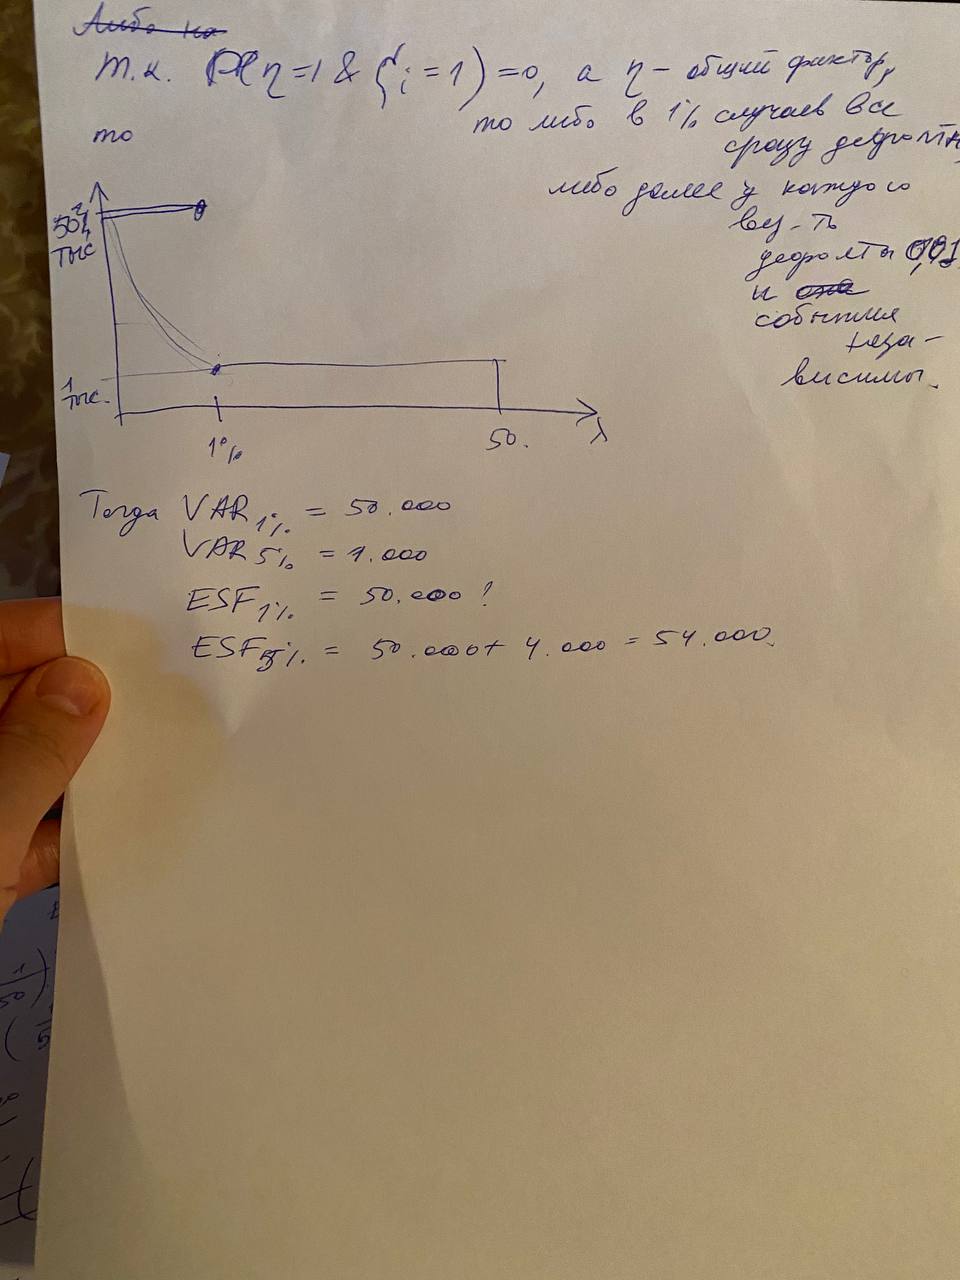 Либо на
т.к. P(η=1 & ξi = 1) = 0, а η - общий фактор,
то либо в 1% случаев все
сразу дефолтн
то
либо далее у каждого
вер-ть
дефолта 0,01
и
события
неза-
висимы.
50
тыс
1
тыс.
1%
50.
λ
Тогда VAR 1% = 50.000
VAR 5% = 1.000
ESF 1% = 50.000 !
ESF 5% = 50.000 + 4.000 = 54.000.